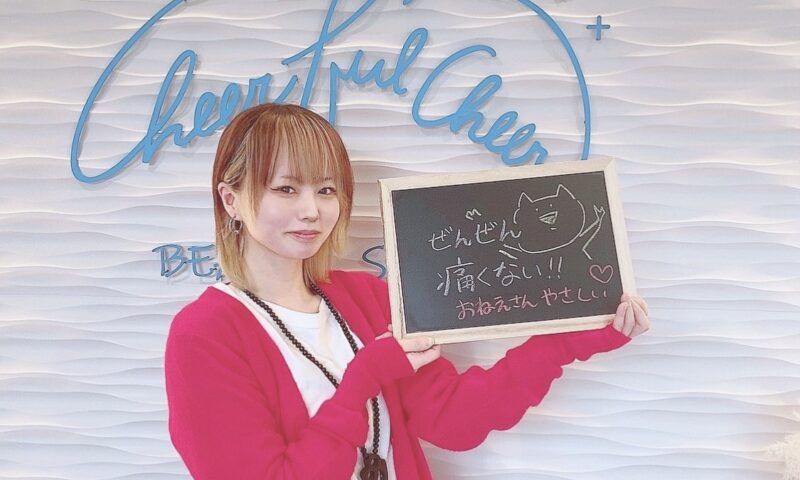 Cheerful Cheer
ぜんぜん
痛くない!!
おねえさん やさしい♡